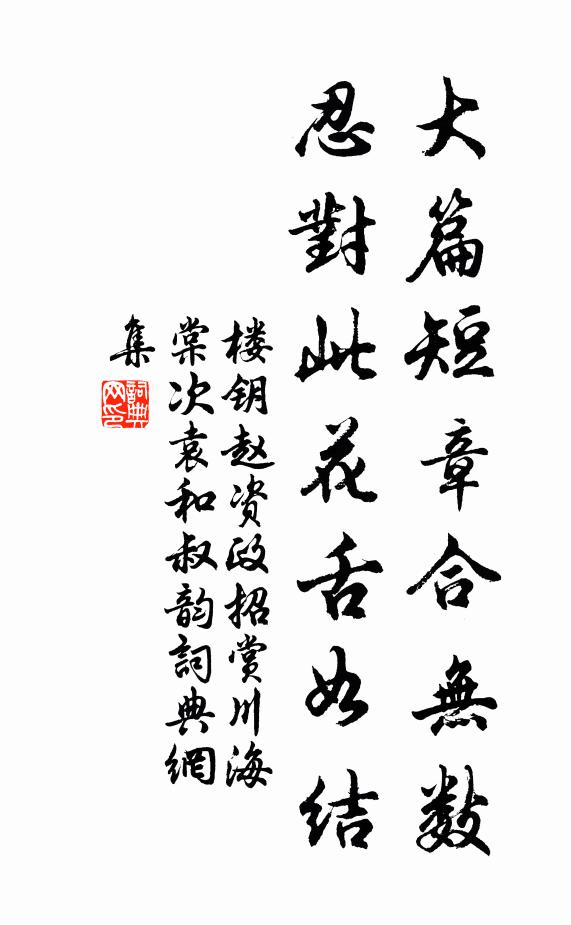 大篇短章合無数
忍對此花舌如结
楼钥赵资政招赏川海
棠次袁和叔韵詞典網
集
詞典网印